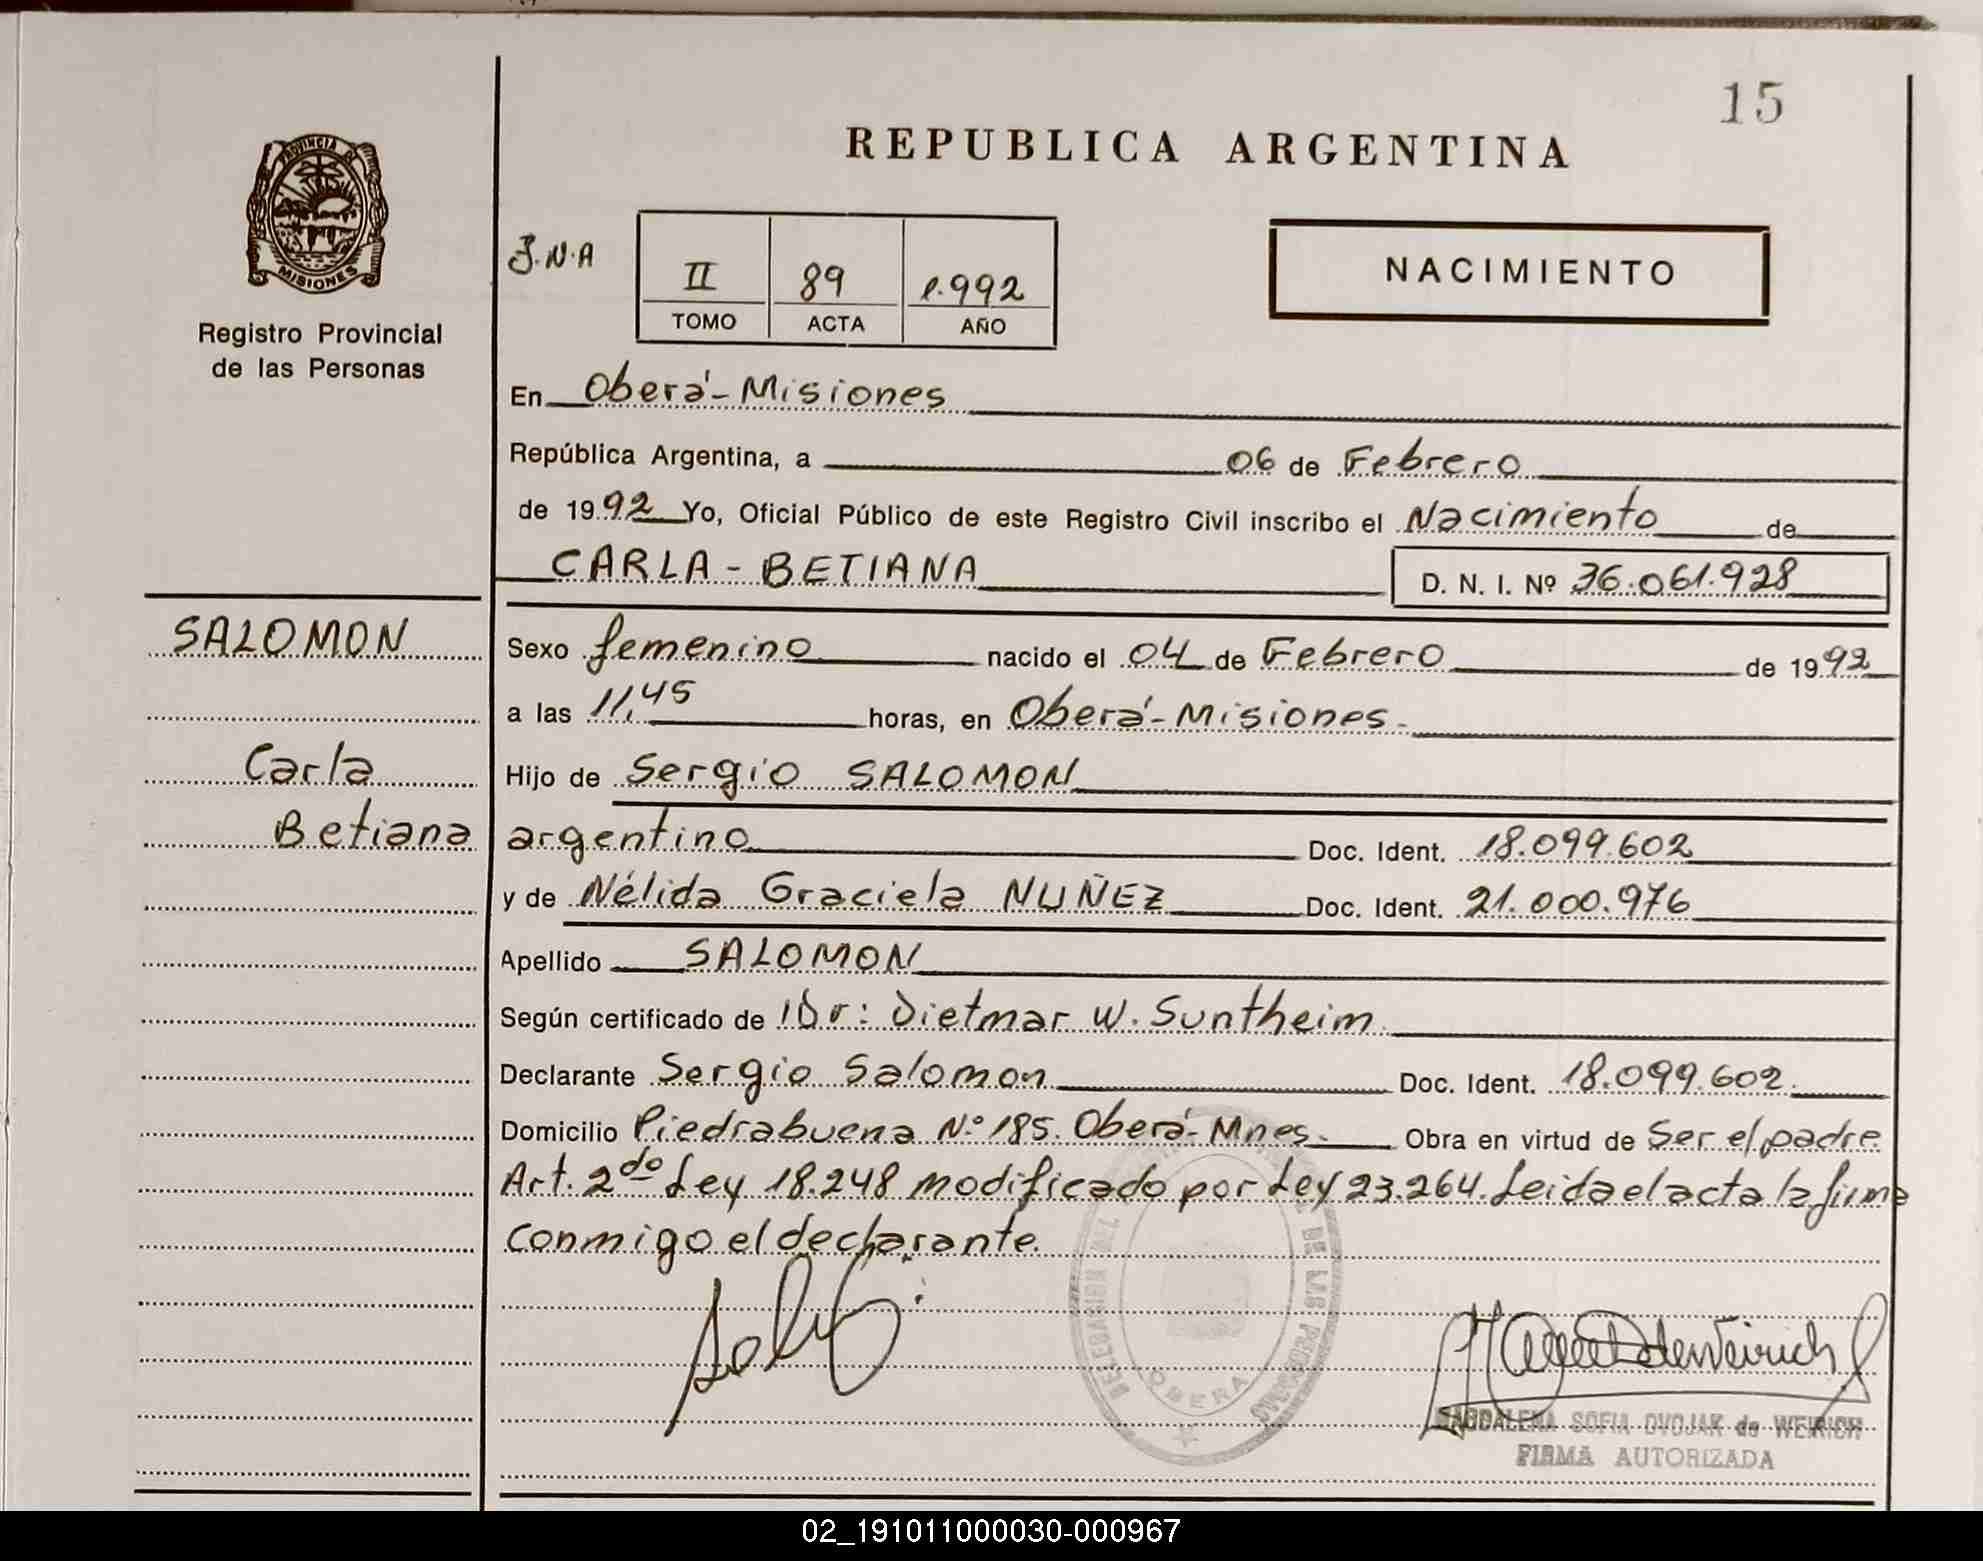 15
REPUBLICA ARGENTINA
PROVINCIA DE
MISIONES
Registro Provincial
de las Personas
J.N.A
II 89 1.992
TOMO ACTA AÑO
NACIMIENTO
En Oberá-Misiones
República Argentina, a 06 de Febrero
de 1992 Yo, Oficial Público de este Registro Civil inscribo el Nacimiento de
CARLA-BETIANA D. N. I. Nº 36.061.928
SALOMON
Carla
Betiana
Sexo femenino nacido el 04 de Febrero de 1992
a las 11,45 horas, en Oberá-Misiones.
Hijo de Sergio SALOMON
argentino Doc. Ident. 18.099.602
y de Nélida Graciela NUÑEZ Doc. Ident. 21.000.976
Apellido SALOMON
Según certificado de Dr: Dietmar W. Suntheim
Declarante Sergio Salomon Doc. Ident. 18.099.602.
Domicilio Piedrabuena Nº 185. Oberá-Mnes. Obra en virtud de Ser el padre
Art. 2do Ley 18.248 modificado por Ley 23.264. Leida el acta la firma
conmigo el declarante.
DELEGACION DE LAS PERSONAS
OBERA
MAGDALENA SOFIA DVOJAK de WEIRICH
FIRMA AUTORIZADA
02_191011000030-000967